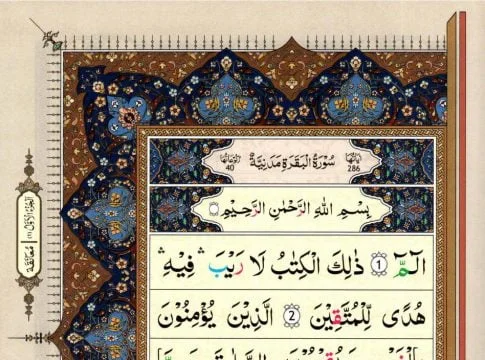 اٰيَاتُهَا 286
سُوْرَةُ الْبَقَرَةِ مَدَنِيَّةٌ
رُكُوْعَاتُهَا 40
بِسْمِ اللهِ الرَّحْمٰنِ الرَّحِيْمِ
الٓمّٓ ۝1 ذٰلِكَ الْكِتٰبُ لَا رَيْبَ ۛ فِيْهِ ۛ
هُدًى لِّلْمُتَّقِيْنَ ۝2 الَّذِيْنَ يُؤْمِنُوْنَ
معانقة